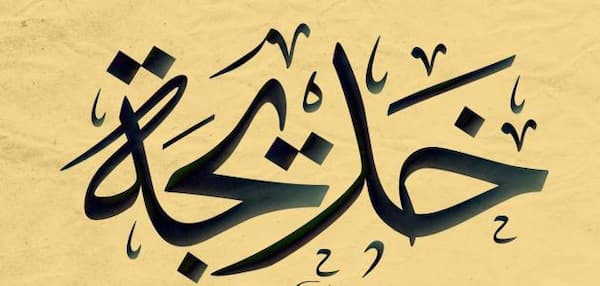 خديجة